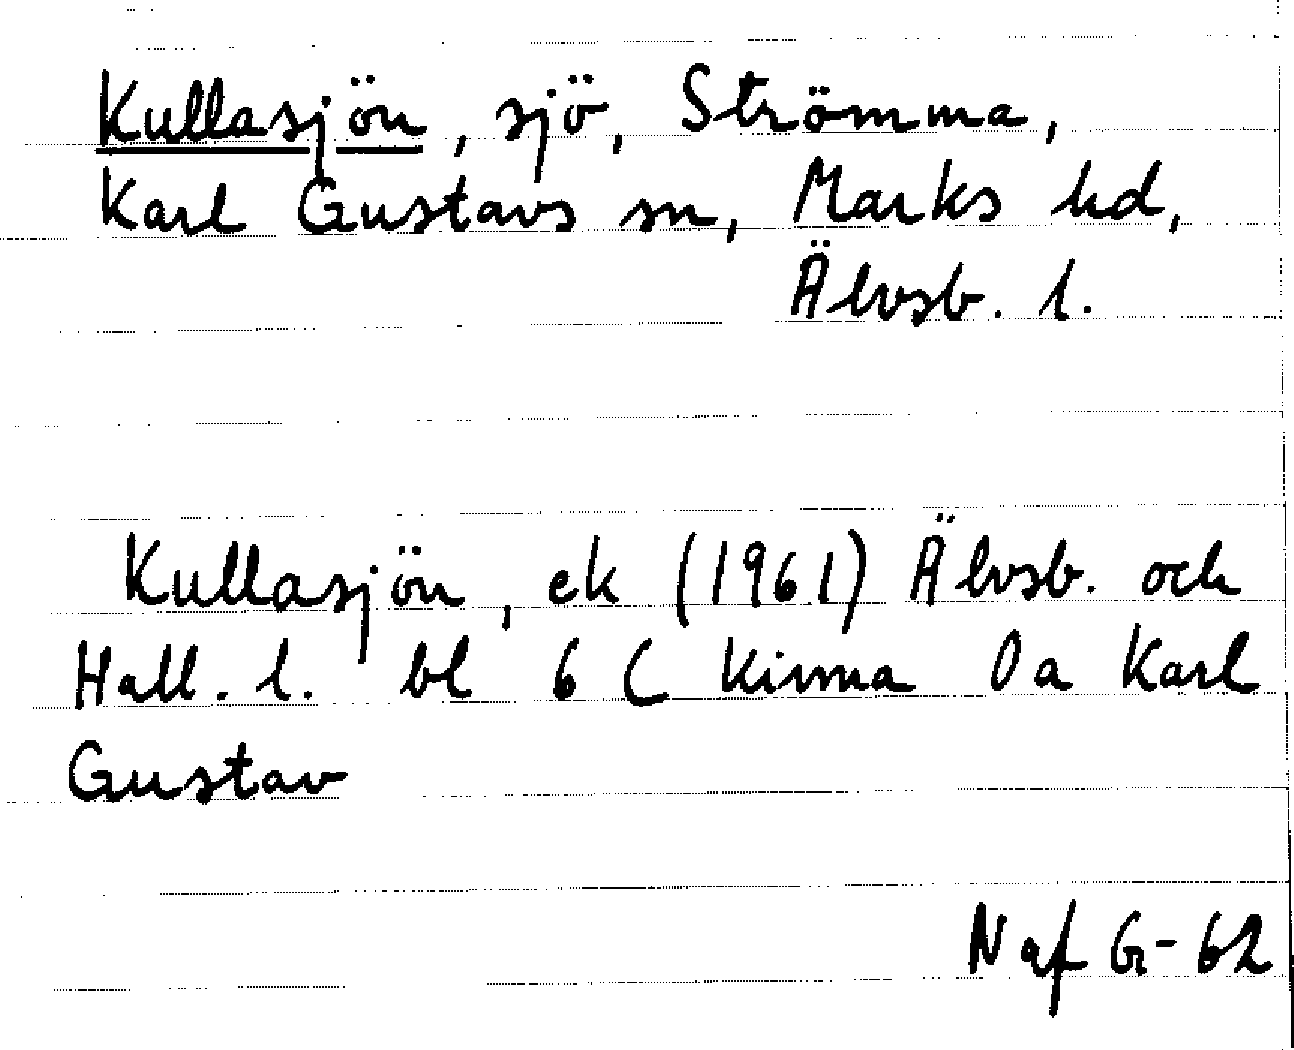 Kullasjön, sjö, Strömma,
Karl Gustavs sn, Marks hd,
Älvsb. l.
Kullasjön, ek (1961) Älvsb. och
Hall. l. bl 6 C Kinna 0a Karl
Gustav
Naf G-62